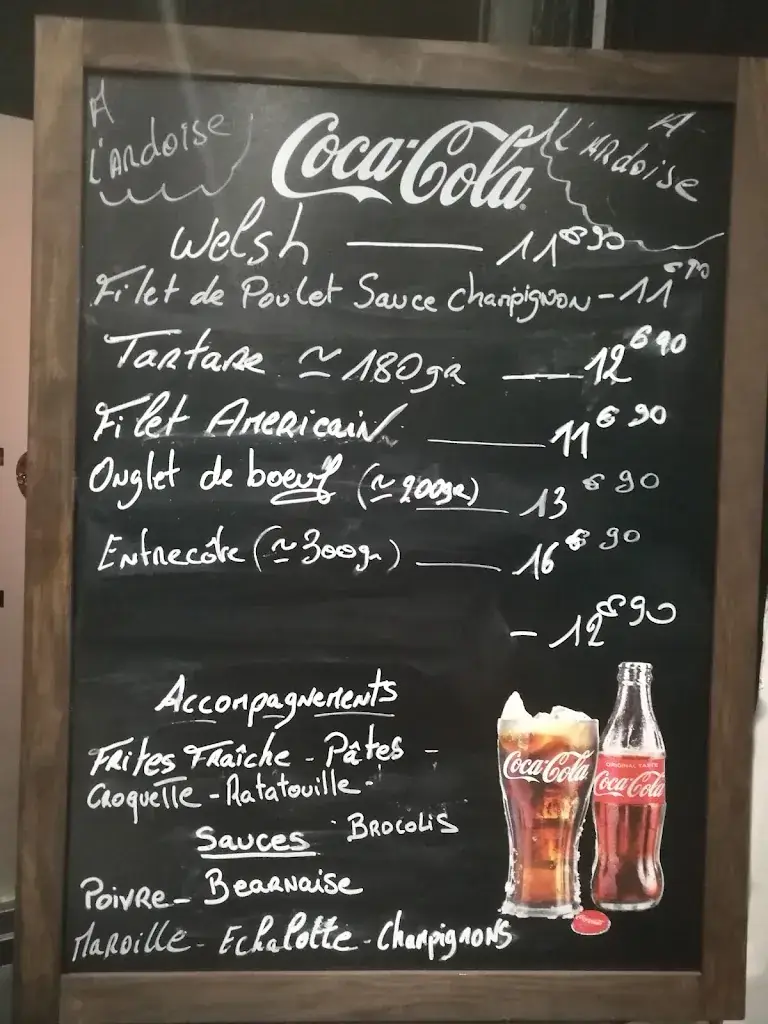 A
L'ARdoise
Coca-Cola
A
L'ARdoise
Welsh — 11€90
Filet de Poulet Sauce champignon - 11€90
Tartare ≃ 180gr — 12€90
Filet Americain — 11€90
Onglet de boeuf (≃ 200gr) — 13€90
Entrecôte (≃ 300gr) — 16€90
- 12€90
Accompagnements
Frites Fraîche - Pâtes -
Croquette - Ratatouille -
Brocolis
Sauces
Poivre - Bearnaise
Maroille - Echalotte - Champignons
Coca-Cola
ORIGINAL TASTE
Coca-Cola